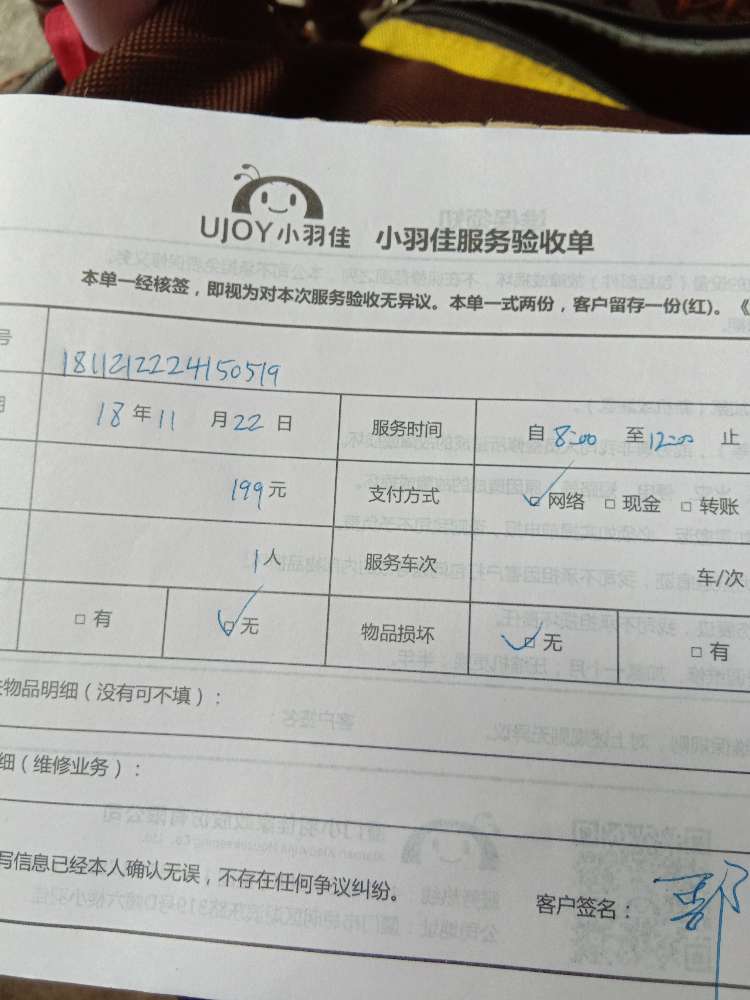 UJOY小羽佳 小羽佳服务验收单
本单一经核签，即视为对本次服务验收无异议。本单一式两份，客户留存一份(红)。《
号 1811212224150519
期 18年11月22日 服务时间 自8:00至12:00止
199元 支付方式 网络 □现金 □转账
1人 服务车次 车/次
□有 □无 物品损坏 □无 □有
物品明细（没有可不填）：
细（维修业务）：
写信息已经本人确认无误，不存在任何争议纠纷。 客户签名：